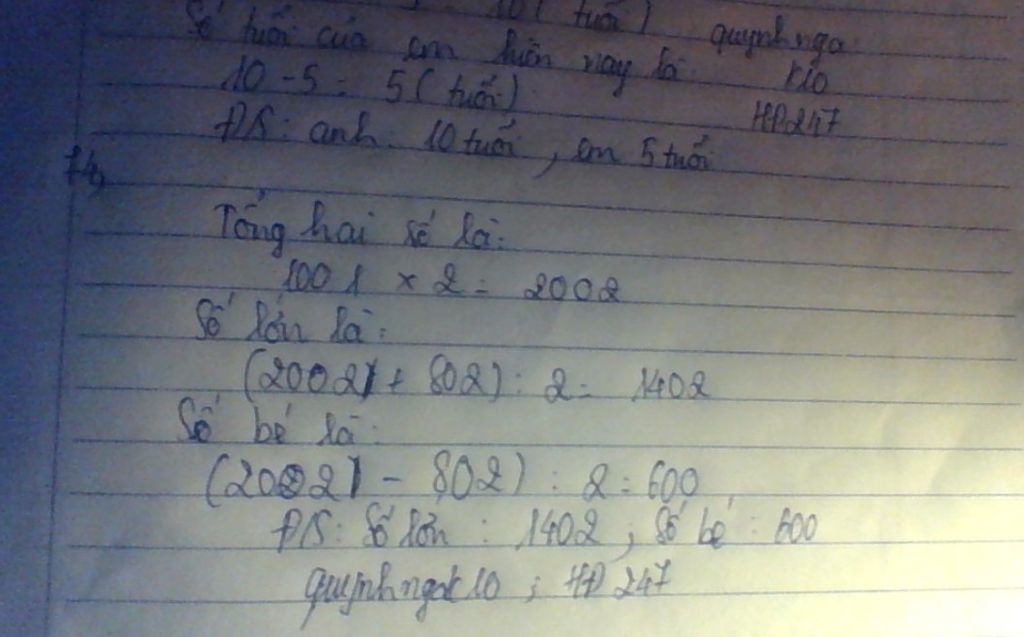 10 (tuổi)
Số tuổi của em hiện nay là quynhnga
10 - 5 = 5 (tuổi) k10
Đ/S: anh: 10 tuổi, em 5 tuổi HP247
Tổng hai số là:
1001 x 2 = 2002
Số lớn là:
(2002) + 802) : 2 = 1402
Số bé là:
(2002) - 802) : 2 = 600
Đ/S: Số lớn : 1402 ; Số bé : 600
quynhngak10 ; HP 247